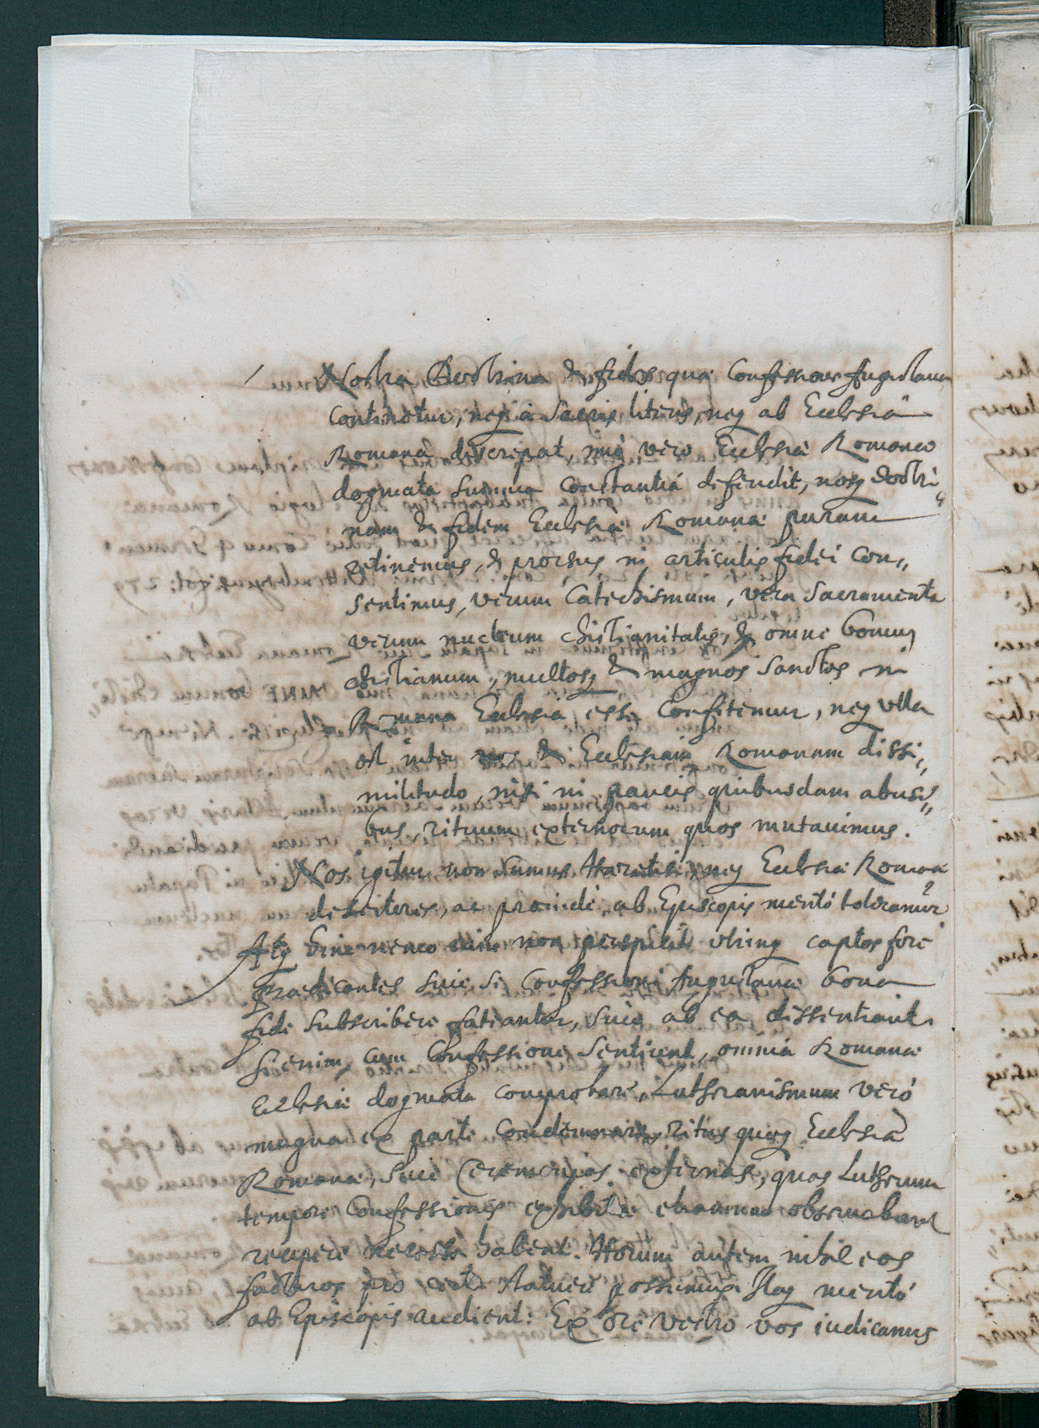 Nostra Doctrina & fides quæ Confessione Augustana
continetur, neq à Sacris literis, neq ab Ecclesiâ
Romanâ discrepat, imò vero Ecclesiæ Romanæ
dogmata summa constantiâ defendit, nosq doctri„
nam & fidem Ecclesiæ Romanæ puram
retinemus, & prorsus in articulis fidei con„
sentimus, verum Catechismum, vera Sacramenta
verum nucleum christianitatis, & omne bonum
christianum, multosq & magnos Sanctos in
Romana Ecclesia esse confitemur, neq vlla
est inter nos & Ecclesiam Romanam dissi„
militudo, nisi in paucis quibusdam abusi„
bus, rituum externorum quos mutauimus.
Nos igitur non sumus Hæretici, neq Ecclesiæ Romanæ
desertores, ac proinde ab Episcopis meritò toleramur
Atq hinc nemo non perspicit vtrinq captos fore
prædicantes siue se Confessioni Augustanæ bona
fide subscribere fateantur, siue ab ea dissentiant.
Si enim cum Confessione sentirent, omnia Romanæ
Ecclesiæ dogmata comprobare, Lutheranismum verò
magna ex parte condemnare, ritus quoq Ecclesiæ
Romanæ, siue Ceremonias externas, quas Lutherum
tempore Confessionis exhibitæ etiamnum obseruabant
recipere necesse habent. Horum autem nihil eos
facturos pro certo statuere possumus. Itaq meritò
ab Episcopis audient: Ex ore vestro vos iudicamus